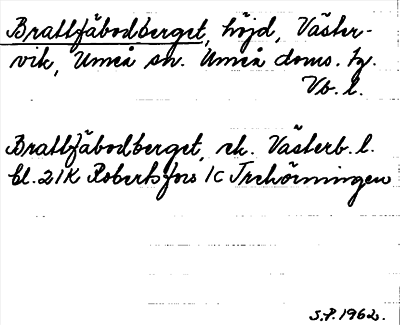 Brattfäbodberget, höjd, Väster-
vik, Umeå sn. Umeå doms. tg.
Vb. l.
Brattfäbodberget, ek. Västerb. l.
bl. 21K Robertsfors 1c Trehörningen
S.P. 1962.